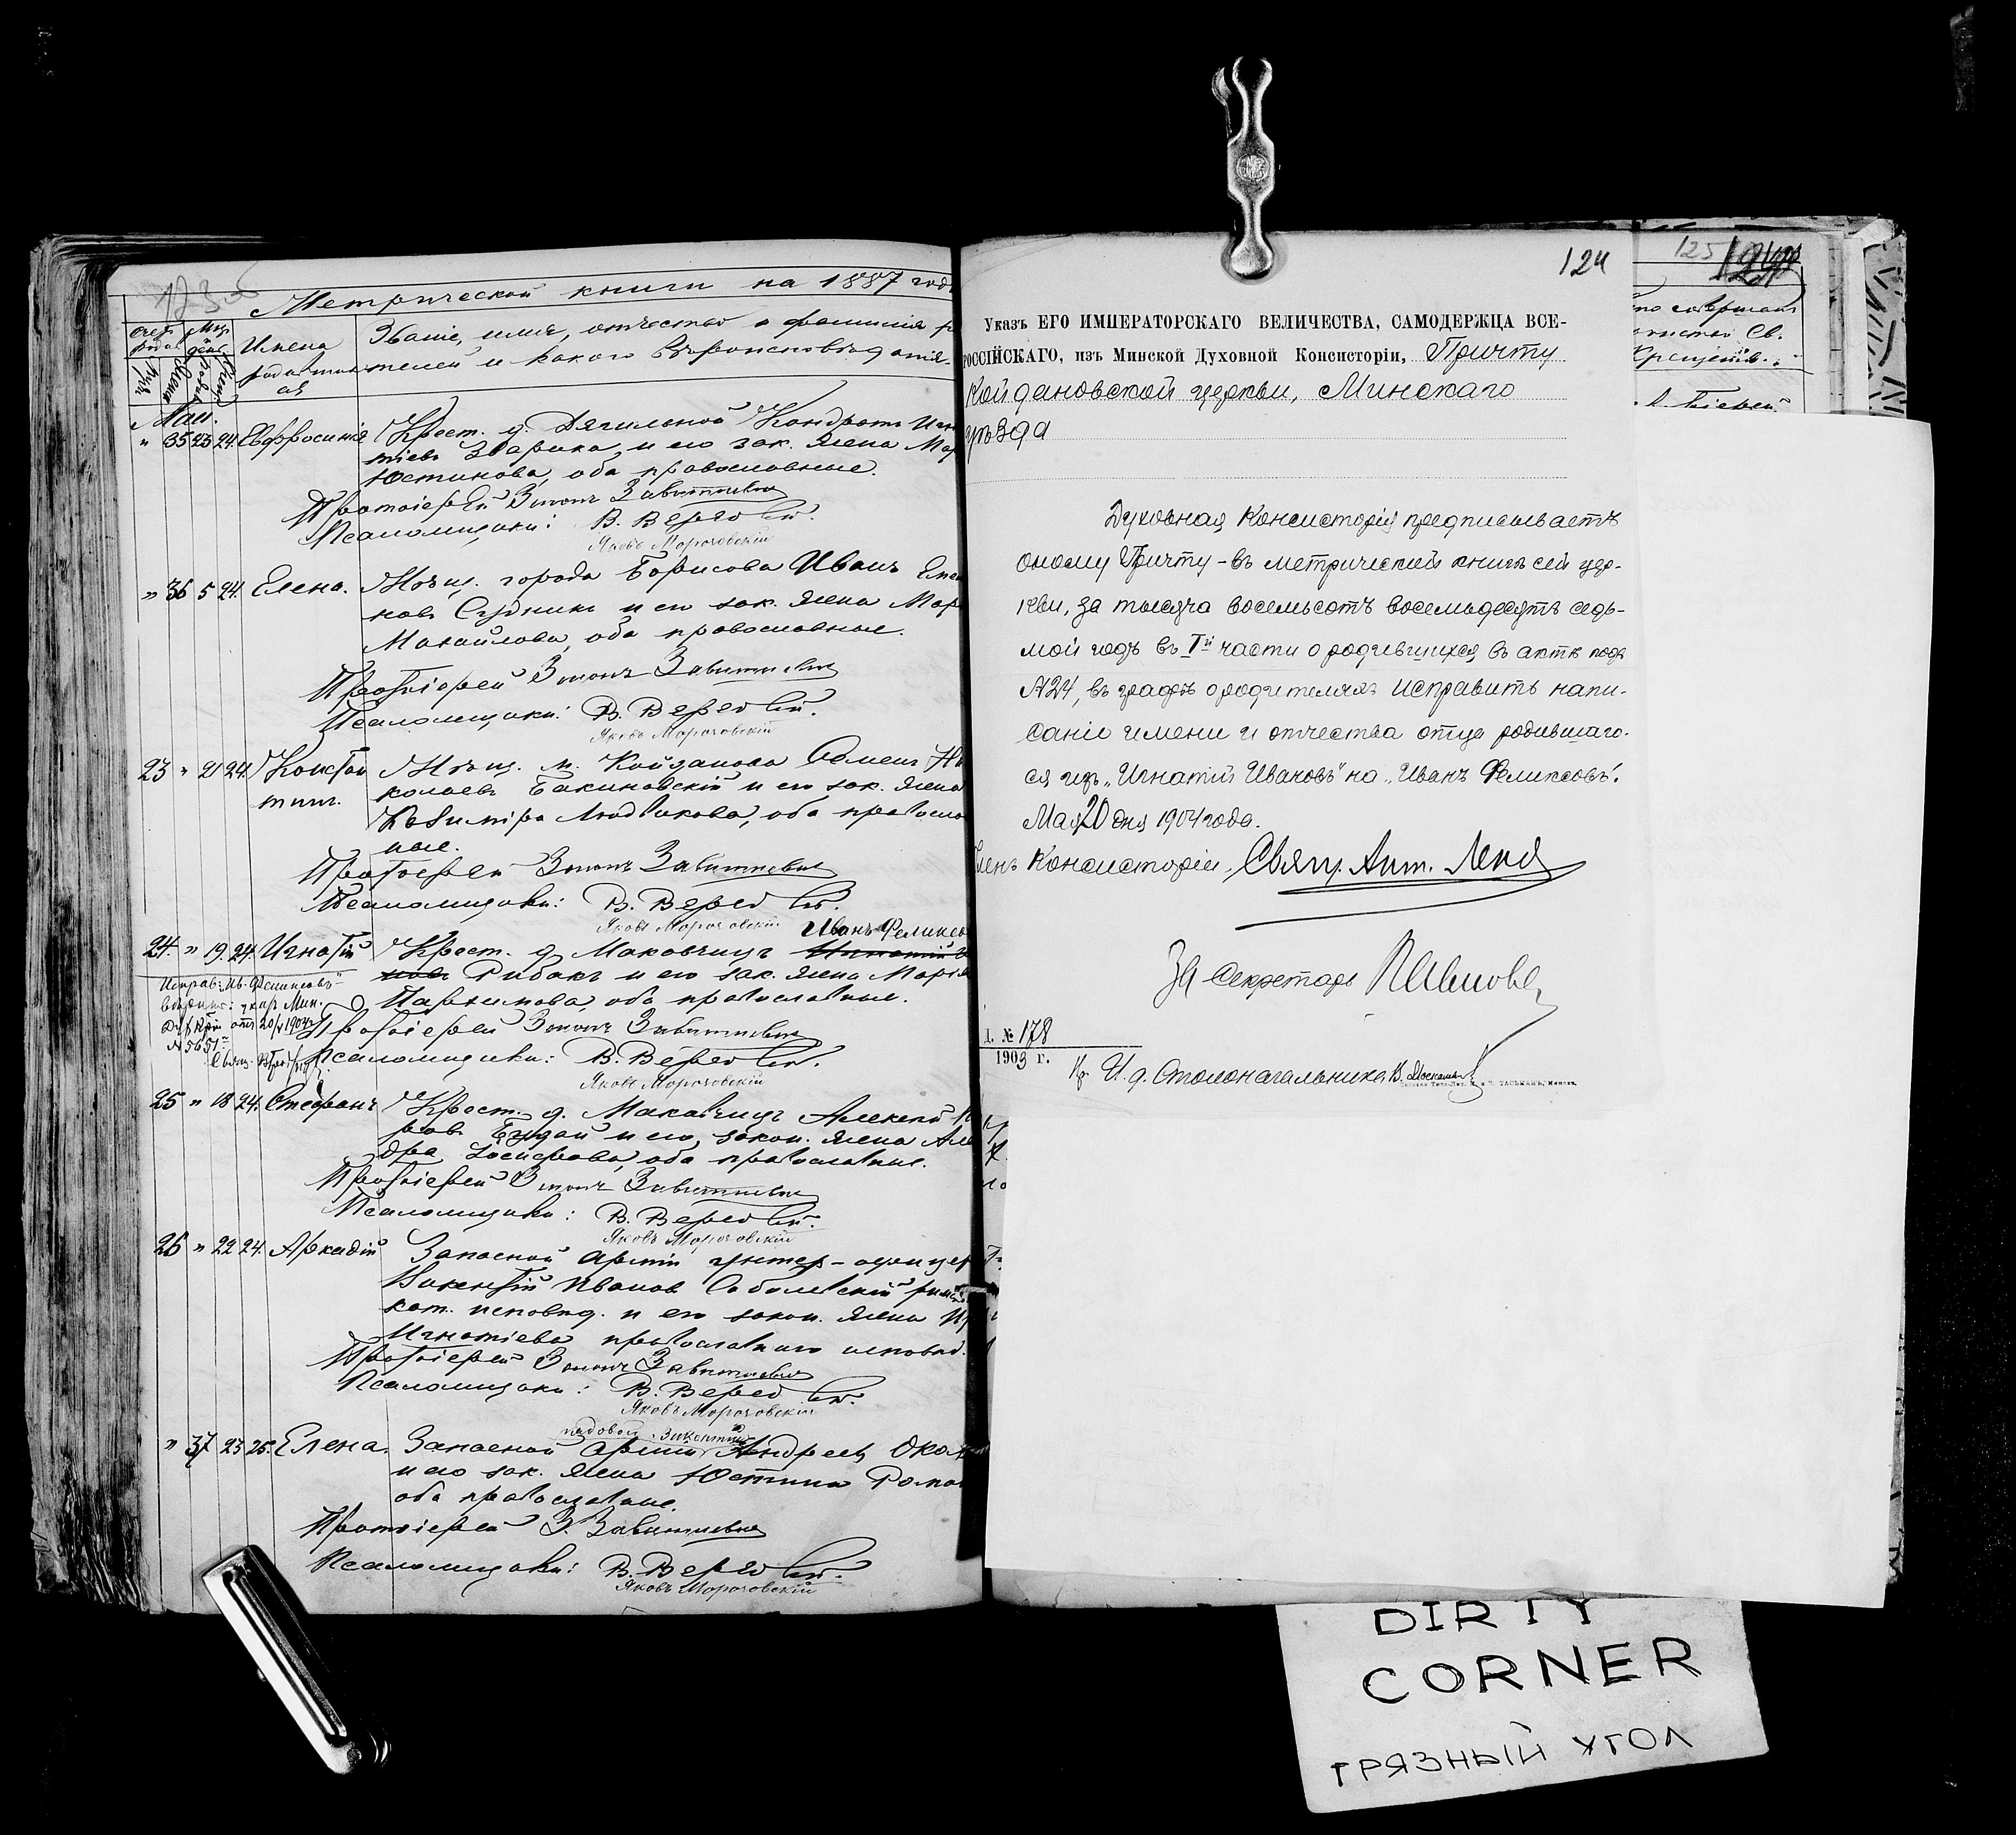 Метрической книги на 1887 годъ
Имена родившихся
Званіе, имя, отчество и фамилія ро
телей и какого вѣроисповѣданія
Маи.
" 35 23 24 Евфросинія Крест. д. Дягильной Кондратъ Игна
тіевъ Зварика и его зак. жена Мар
Юстинова, оба православные.
Протоіерей Зинонъ Завитневичъ
Псаломщики: В. Вере
Яковъ Морочовскій
" 36 5 24. Елена. Мѣщ. города Борисова Иванъ Семе
новъ Судникъ и его зак. жена Мар
Михайлова, оба православные.
Протоіерей Зинонъ Завитневичъ
Псаломщики: В. Вере
Яковъ Морочовскій
23 " 21 24. Констан
тинъ.
Мѣщ. м. Койданова Семенъ Ни
колаевъ Бакиновскій и его зак. жена
Казимира Людвикова, оба православ
ные.
Протоіерей Зинонъ Завитневичъ
Псаломщики: В. Вере
Яковъ Морочовскій
Иванъ Феликсо
24. " 19. 24. Игнатій Крест. д. Маковчицъ Игнатій Ива
новъ Рыбакъ и его зак. жена Марія
Пархимова, оба православные.
Исправ: "Ив. Феликсовъ"
Дух. К-ріи отъ 20/V 1904 г.
№ 5651
Протоіерей Зинонъ Завитневичъ
Псаломщики: В. Вере
Яковъ Морочовскій
25 " 18 24. Стефанъ Крест. д. Маковчицъ Алексѣй
ровъ Буздай и его закон. жена Алексан
дра Іосифова, оба православные.
Протоіерей Зинонъ Завитневичъ
Псаломщики: В. Вере
Яковъ Морочовскій
26 " 22 24. Аркадій Запасной арміи унтер-офицеръ
Викентій Иванов Соболевскій рим
кат. исповѣд. и его закон. жена
Игнатіева православнаго исповѣд.
Протоіерей Зинонъ Завитневичъ
Псаломщики: В. Вере
Яковъ Морочовскій
рядовой Викентій
" 37 23 25. Елена. Запасной арміи Андреевъ
и его зак. жена Юстина Рома
оба православные.
Протоіерей З. Завитневичъ
Псаломщики: В. Вере
Яковъ Морочовскій
124
Указъ ЕГО ИМПЕРАТОРСКАГО ВЕЛИЧЕСТВА, САМОДЕРЖЦА ВСЕ-
РОССІЙСКАГО, изъ Минской Духовной Консисторіи, Причту
Койдановской церкви, Минскаго
уѣзда
Духовная Консисторія предписываетъ
оному Причту - въ метрической книгѣ сей цер-
кви, за тысяча восемьсотъ восемьдесятъ седь-
мой годъ въ Iй части о родившихся въ актѣ подъ
№24, въ графѣ о родителяхъ исправить напи-
саніе имени и отчества отца родившаго-
ся изъ "Игнатій Ивановъ" на "Иванъ Феликсовъ".
Мая 20 дня 1904 года.
Членъ Консисторіи, Свящ. Ант. Лекс
За Секретаря
Д. № 178
1903 г.
И. д. Столоначальника
125
что совершалъ
таинство Св.
Крещенія.
DIRTY
CORNER
ГРЯЗНЫЙ УГОЛ